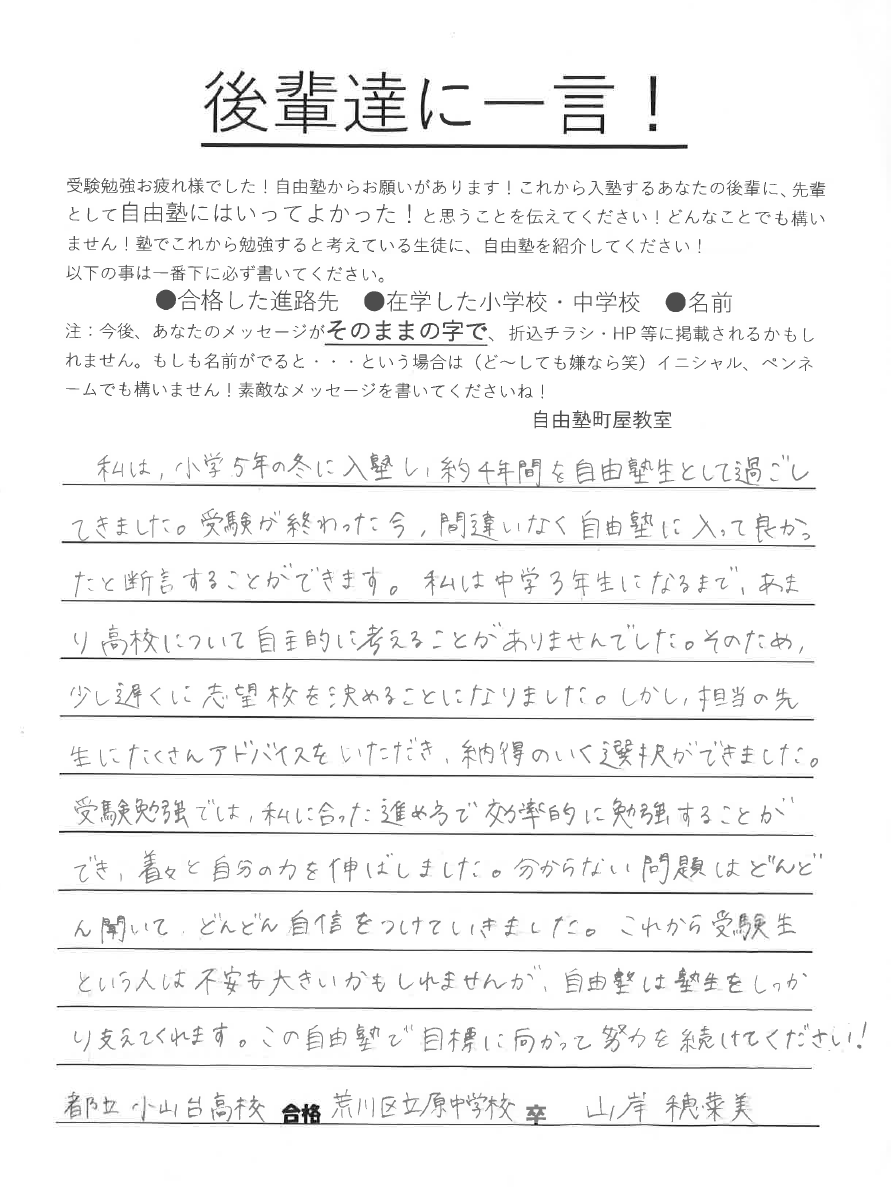 後輩達に一言！
受験勉強お疲れ様でした！自由塾からお願いがあります！これから入塾するあなたの後輩に、先輩
として自由塾にはいってよかった！と思うことを伝えてください！どんなことでも構い
ません！塾でこれから勉強すると考えている生徒に、自由塾を紹介してください！
以下の事は一番下に必ず書いてください。
●合格した進路先　●在学した小学校・中学校　●名前
注：今後、あなたのメッセージがそのままの字で、折込チラシ・HP等に掲載されるかもし
れません。もしも名前がでると・・・という場合は（ど～しても嫌なら笑）イニシャル、ペンネ
ームでも構いません！素敵なメッセージを書いてくださいね！
自由塾町屋教室
私は，小学5年の冬に入塾し，約4年間を自由塾生として過ごし
てきました。受験が終わった今，間違いなく自由塾に入って良かっ
たと断言することができます。私は中学3年生になるまで，あま
り高校について自主的に考えることがありませんでした。そのため，
少し遅くに志望校を決めることになりました。しかし，担当の先
生にたくさんアドバイスをいただき，納得のいく選択ができました。
受験勉強では，私に合った進め方で効率的に勉強することが
でき，着々と自分の力を伸ばしました。分からない問題はどんど
ん聞いて，どんどん自信をつけていきました。これから受験生
という人は不安も大きいかもしれませんが，自由塾は塾生をしっか
り支えてくれます。この自由塾で目標に向かって努力を続けてください！
都立小山台高校 合格 荒川区立原中学校 卒 山岸 穂菜美